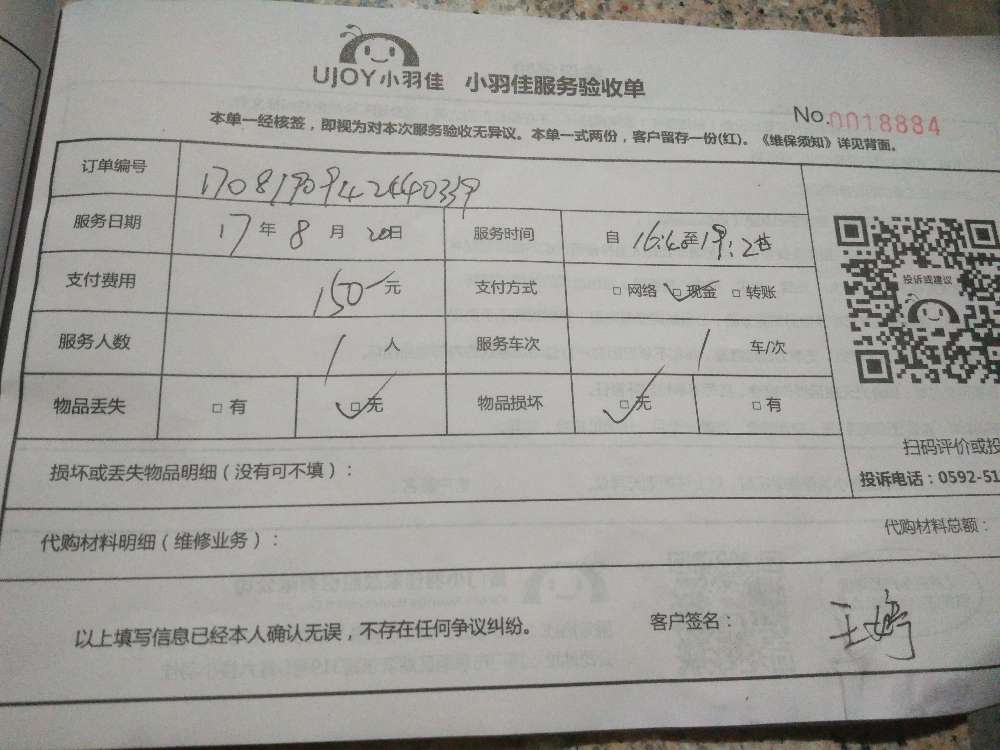 UJOY小羽佳 小羽佳服务验收单
No.0018884
本单一经核签，即视为对本次服务验收无异议。本单一式两份，客户留存一份(红)。《维保须知》详见背面。
订单编号
服务日期 17年8月20日 服务时间 自16:40至19:20
支付费用 150元 支付方式 □网络 □现金 □转账
服务人数 1人 服务车次 1车/次
物品丢失 □有 □无 物品损坏 □无 □有
投诉或建议
扫码评价或投
投诉电话：0592-51
损坏或丢失物品明细（没有可不填）：
代购材料明细（维修业务）： 代购材料总额：
以上填写信息已经本人确认无误，不存在任何争议纠纷。 客户签名：王婷